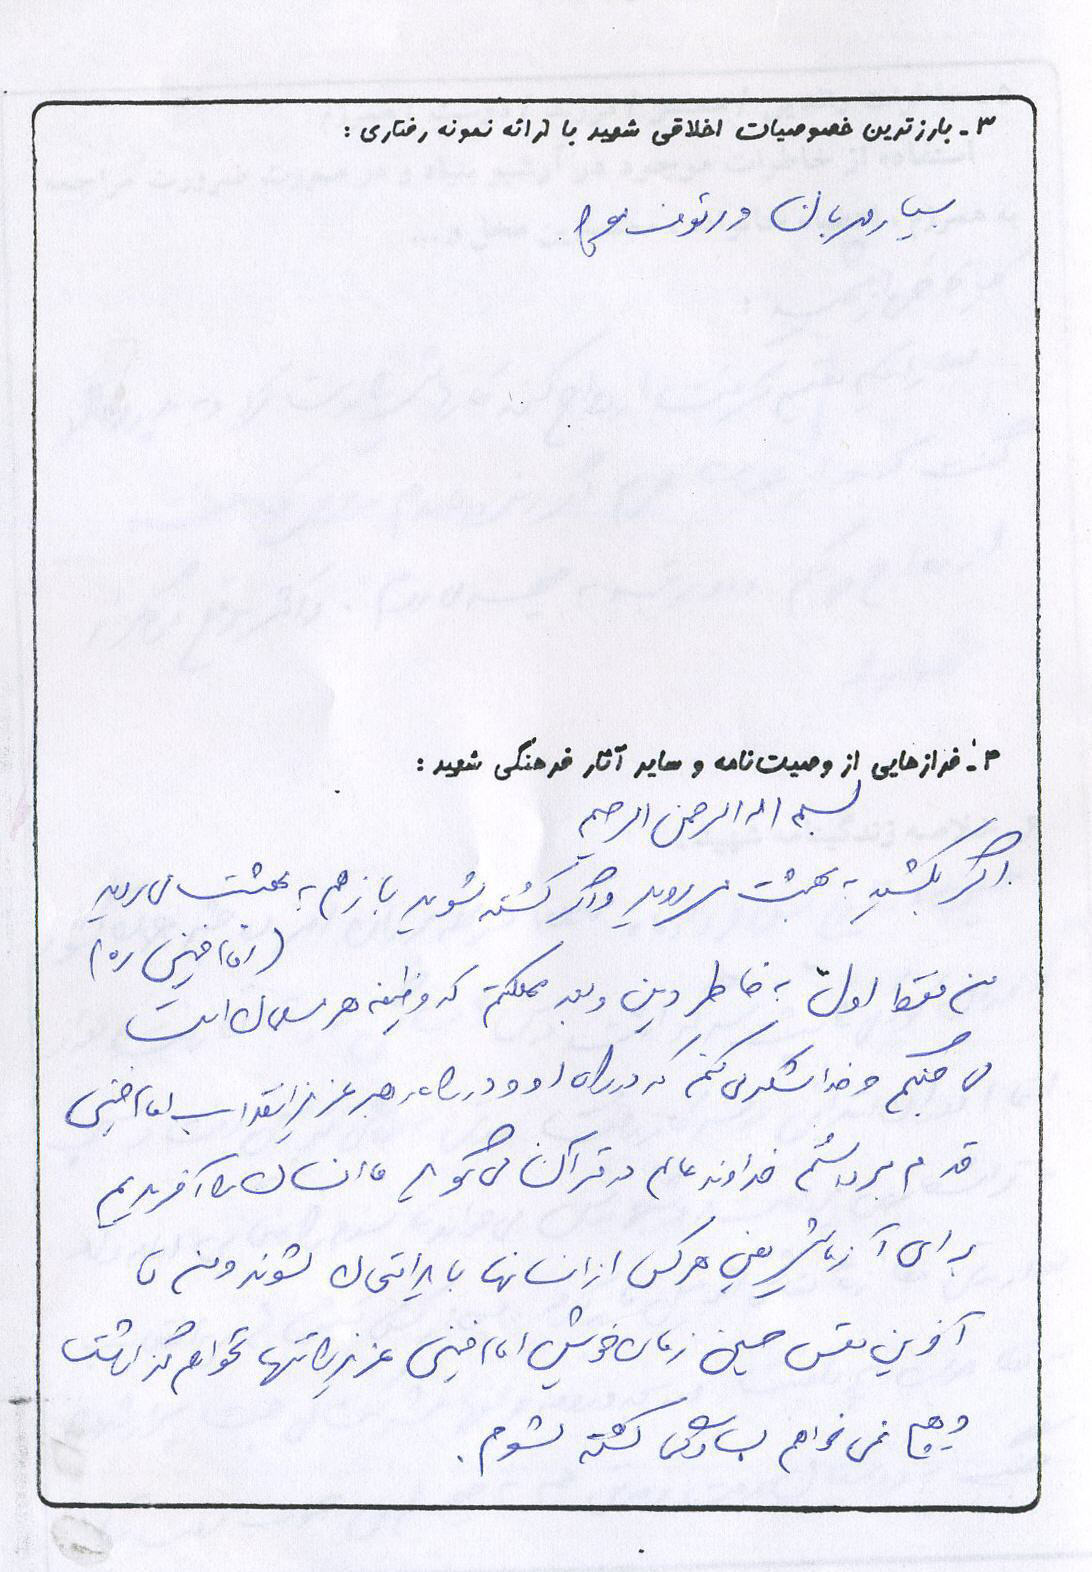 ۳- بارزترین خصوصیات اخلاقی شهید با ارائه نمونه رفتاری:
بسیار مهربان و رئوف
۴- فرازهایی از وصیت‌نامه و سایر آثار فرهنگی شهید:
بسم اله الرحمن الرحیم
اگر بکشید به بهشت میروید و اگر کشته شوید باز هم به بهشت می روید
(امام خمینی ره)
من فقط اول به خاطر دین و بعد مملکتم که وظیفه هر مسلمان است
می جنگم و خدا شکر می کنم که در راه او و در راه رهبر عزیز انقلاب امام خمینی
قدم برداشتم خداوند عالم در قرآن می گوید ما انسان را آفریدیم
برای آزمایش یعنی هر کس از انسانها باید امتحان شوند و من تا
آخرین نفس حسین زمان خویش امام خمینی عزیز را تنها نخواهم گذاشت
و هیچ نمی خواهم به سادگی کشته شوم.